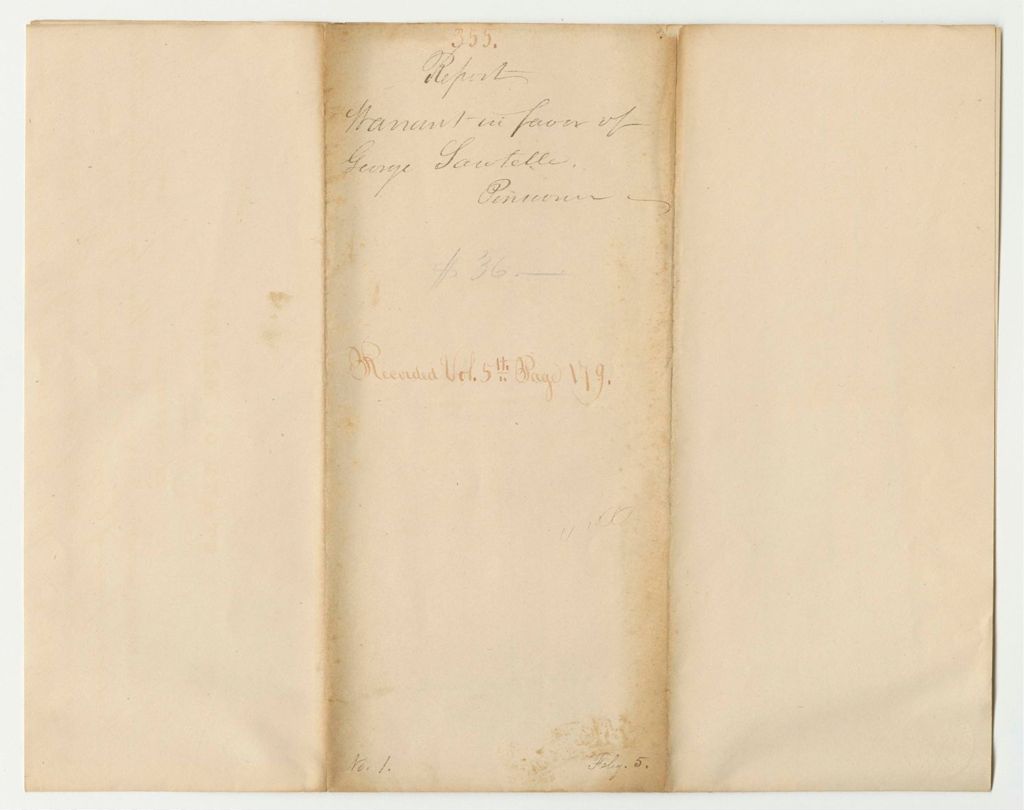 355.
Report
Warrant in favor of
George Sawtelle.
Pensioner
$36
Recorded Vol. 5th Page 179.
No. 1.
Feby. 5.